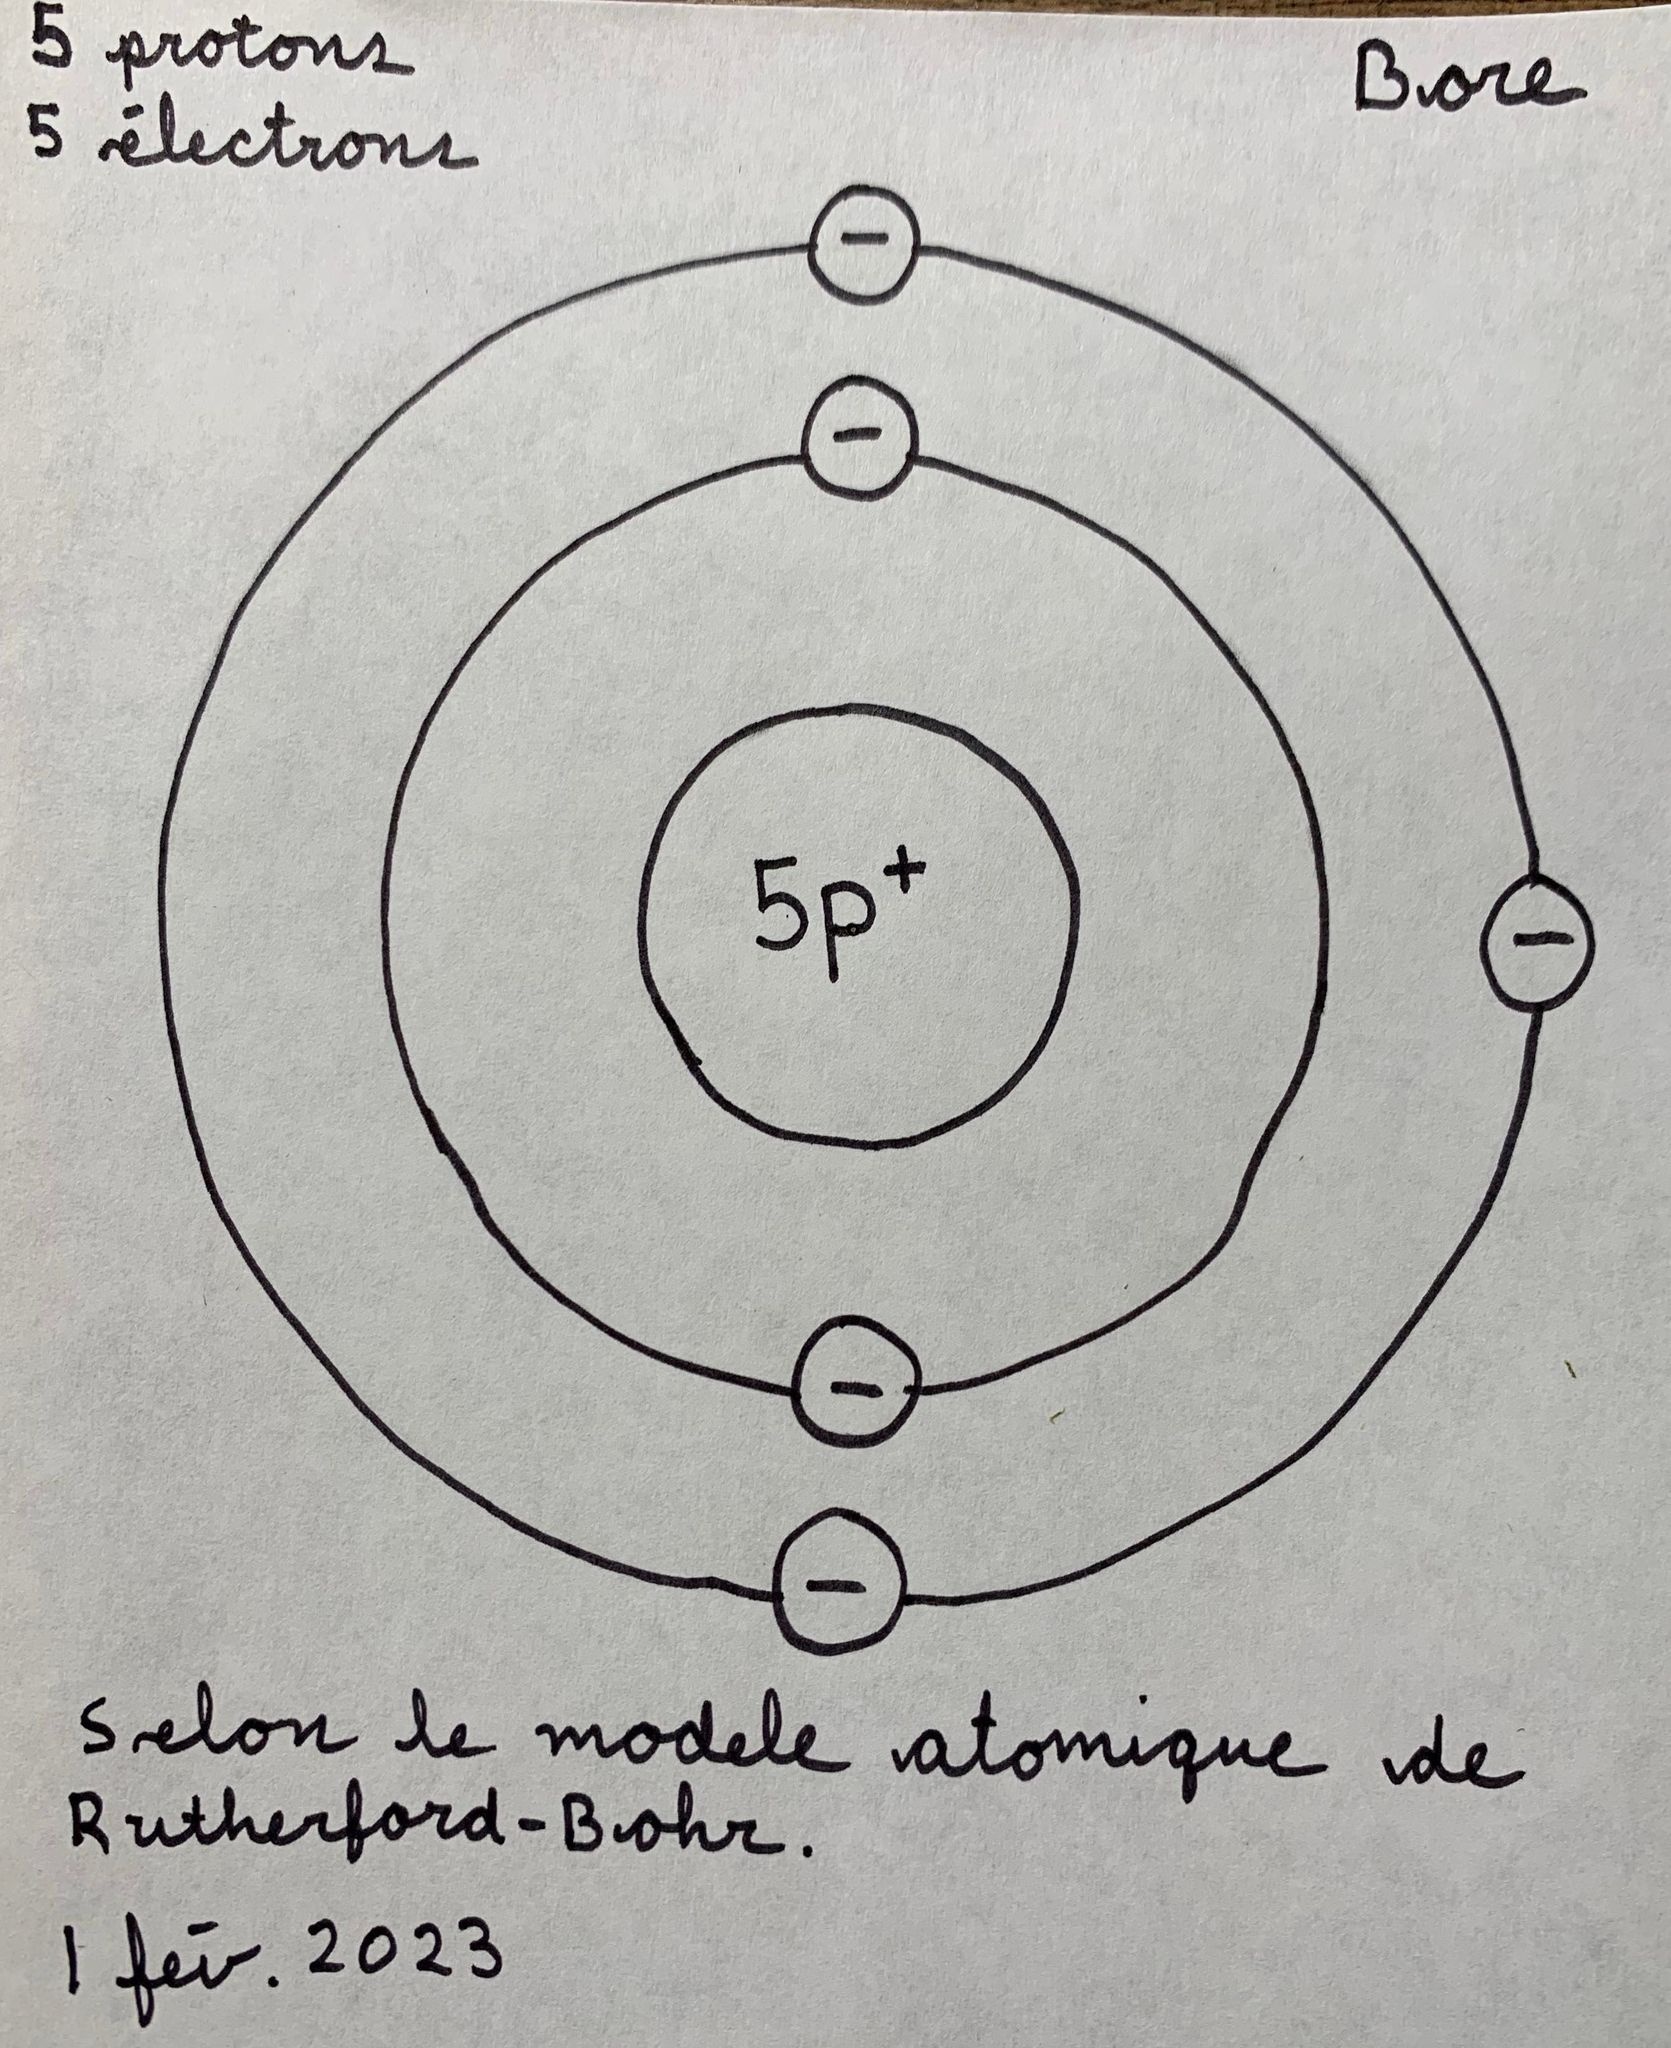 5 protons
5 électrons
Bore
−
−
5p⁺
−
−
−
Selon le modele atomique de
Rutherford-Bohr.
1 fév. 2023